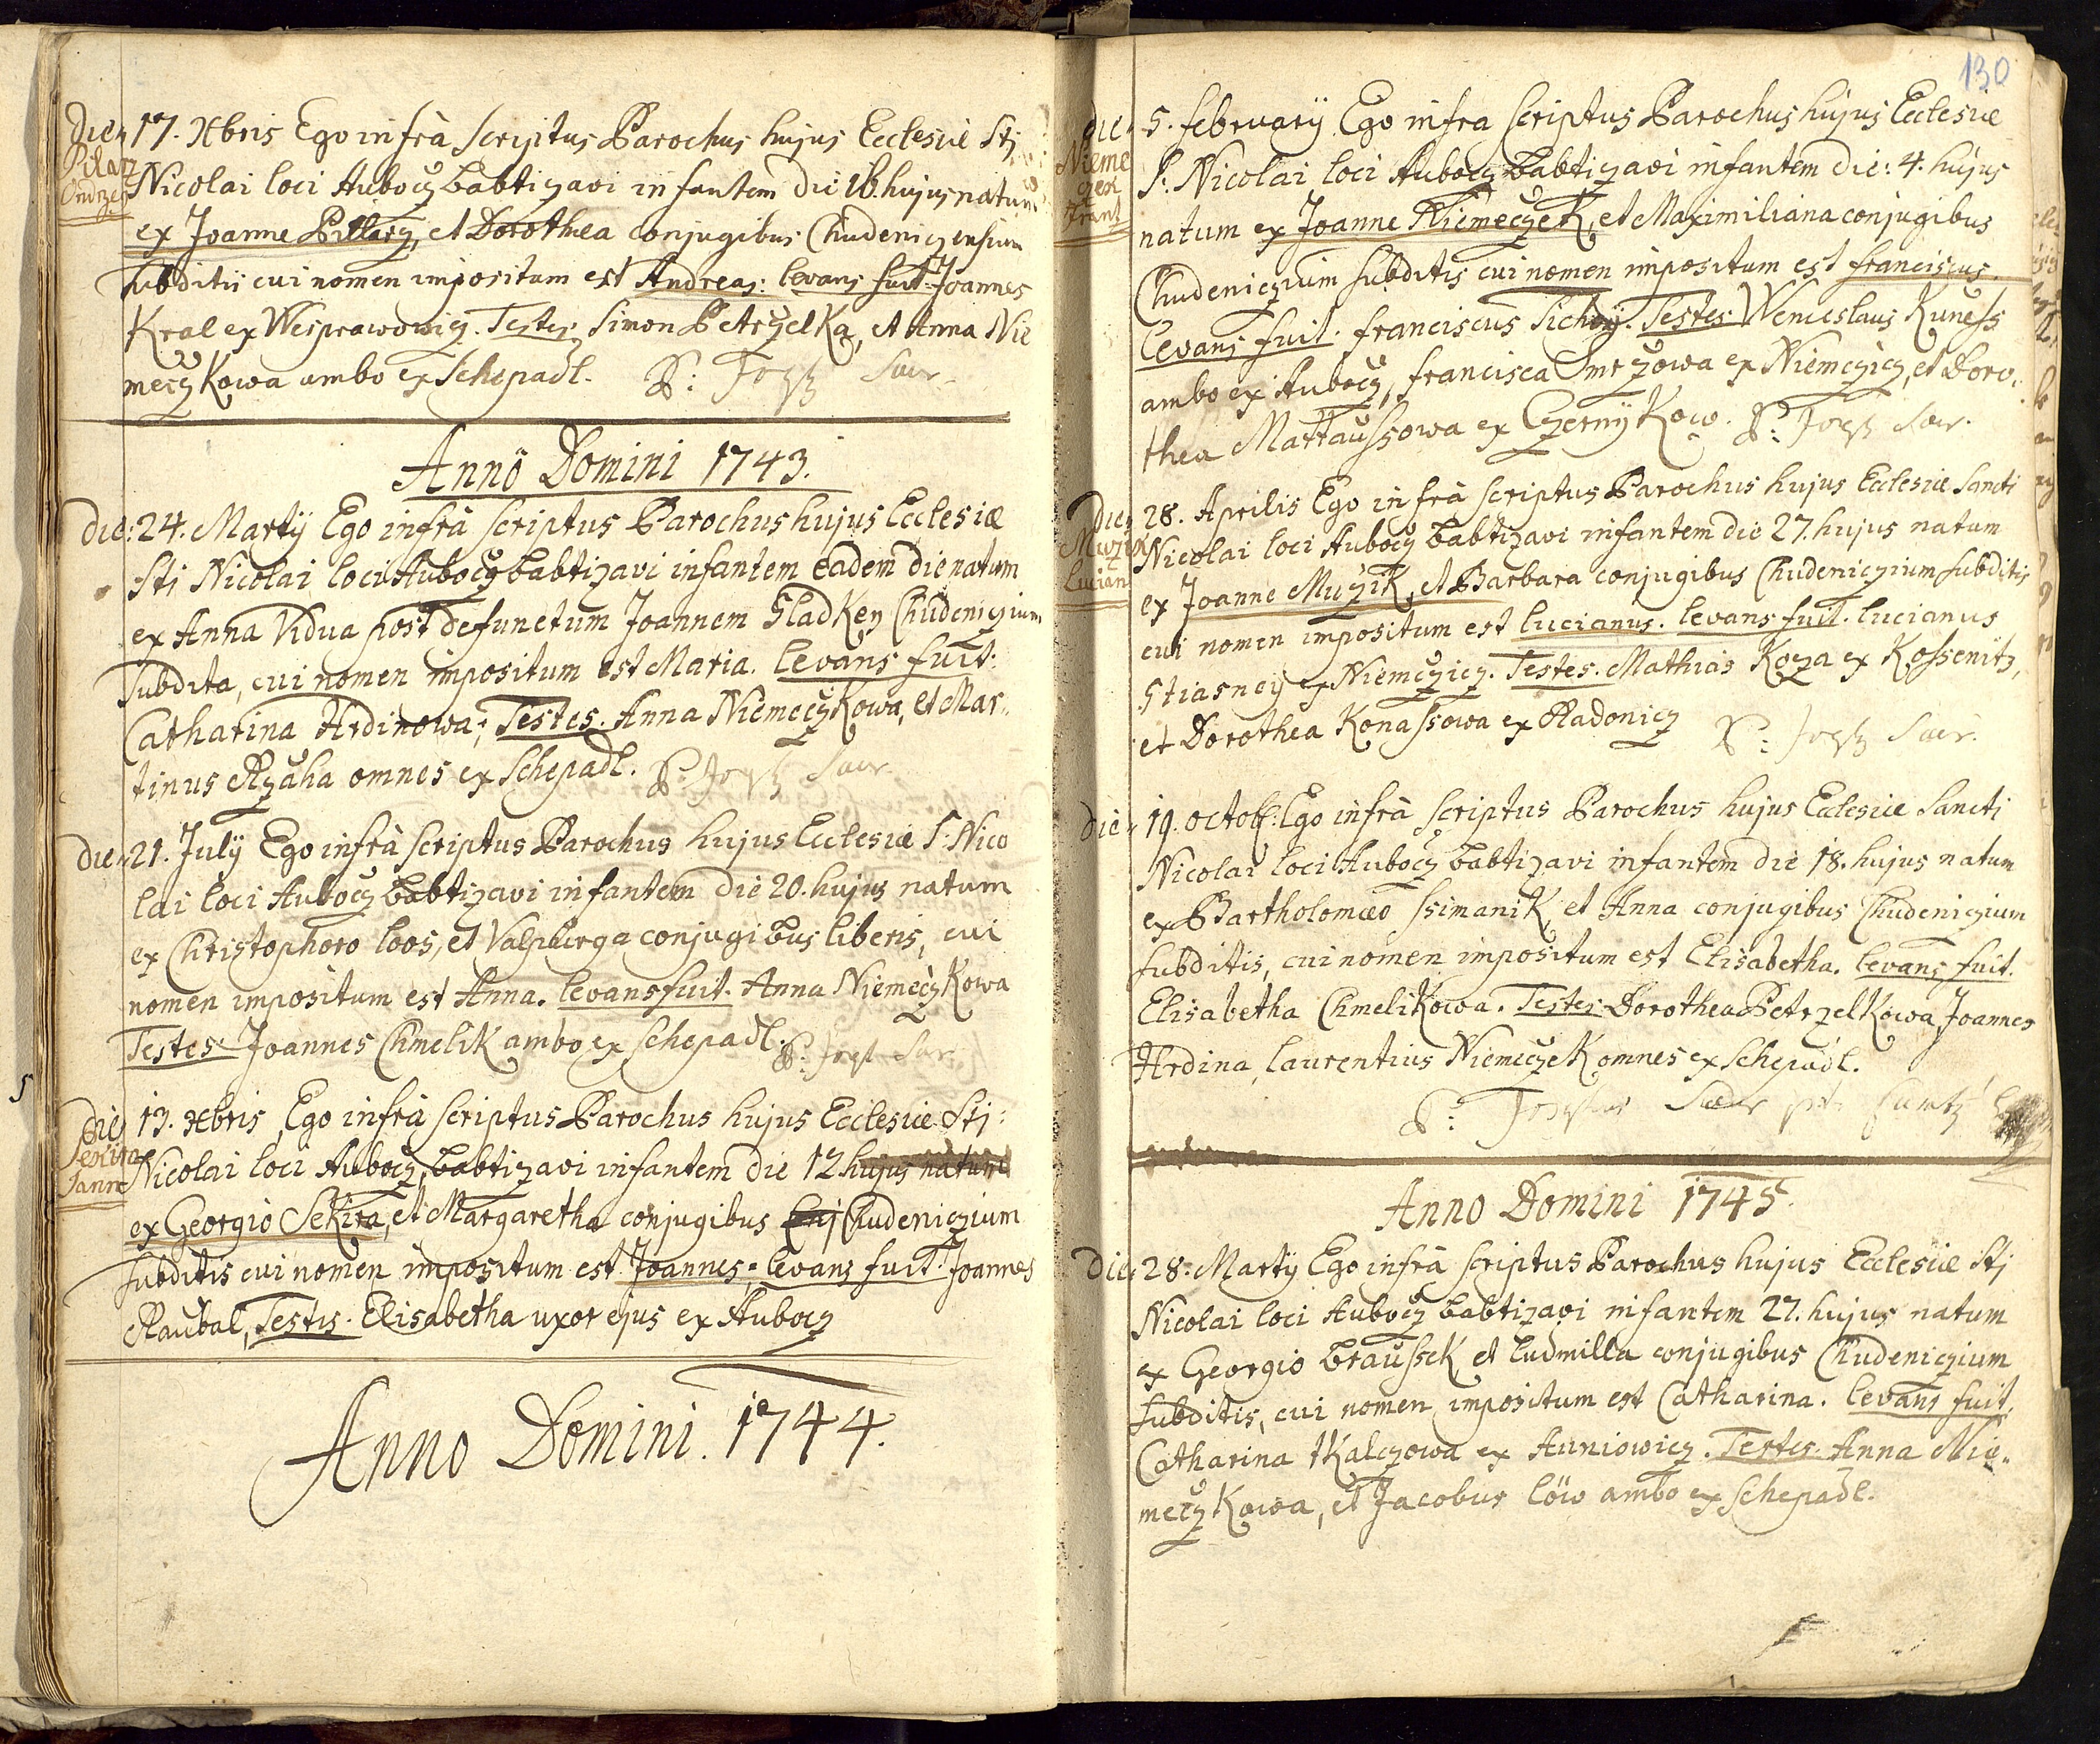 Die 17. Xbris Ego infrà scriptus Parochus hujus Ecclesiæ Sti
Pilarz
Ondrzeg
Nicolai loci Aubocz babtizavi infantem die 16. hujus natum
ex Joanne Pillarz, et Dorothea conjugibus Chudeniczensium
subditis cui nomen impositum est Andreas: levans fuit. Joannes
Kral ex Wesprawowicz. Testes Simon Petrzelka, et Anna Nie
meczkowa ambo ex Schepadl. P: Joseph Saer
Anno Domini 1743.
die: 24. Martÿ Ego infrà scriptus Parochus hujus Ecclesiæ
Sti Nicolai loci Aubocz babtizavi infantem eadem die natum
ex Anna Vidua post defunctum Joannem Gladkey Chudeniczium
subdita, cui nomen impositum est Maria. levans fuit.
Catharina Hrdinowa; Testes. Anna Niemeczkowa, et Mar-
tinus Rzaha omnes ex Schepadl. P: Joseph Saer
die 21. Julÿ Ego infrà scriptus Parochus hujus Ecclesiæ S: Nico
lai loci Aubocz babtizavi infantem die 20. hujus natum
ex Christophoro loos, et Valpurga conjugibus liberis, cui
nomen impositum est Anna. levans fuit. Anna Niemeczkowa
Testes. Joannes Chmelik ambo ex Schepadl. P: Joseph Saer
die 13. Xbris Ego infrà scriptus Parochus hujus Ecclesiæ Sti:
Sekira
Janne
Nicolai loci Aubocz, babtizavi infantem die 12 hujus natum
ex Georgio Sekira, et Margaretha conjugibus Chudeniczium
subditis cui nomen impositum est Joannes: levans fuit. Joannes
Raubal, Testis. Elisabetha uxor ejus ex Aubocz
Anno Domini. 1744.
130
die 5. februarÿ Ego infra scriptus Parochus hujus Ecclesiæ
Nieme
czek
Frant
S: Nicolai loci Aubocz babtizavi infantem die: 4. hujus
natum ex Joanne Niemeczek, et Maximiliana conjugibus
Chudeniczium subditis cui nomen impositum est franciscus.
levans fuit. franciscus Tichÿ. Testes. Wenceslaus Kuness
ambo ex Aubocz, francisca Smrzowa ex Niemczicz, et Doro-
thea Mattaussowa ex Czernÿkow. P: Joseph Saer.
die 28. Aprilis Ego infrà scriptus Parochus hujus Ecclesiæ Sancti
Muzik
Lucian
Nicolai loci Aubocz babtizavi infantem die 27. hujus natum
ex Joanne Muzik, et Barbara conjugibus Chudeniczium subditis
cui nomen impositum est lucianus. levans fuit. lucianus
Stiasney ex Niemczicz. Testes. Mathias Koza ex Kossenitz,
et Dorothea Konassowa ex Radonicz P: Joseph Saer.
die 19. octob: Ego infrà scriptus Parochus hujus Ecclesiæ Sancti
Nicolai loci Aubocz babtizavi infantem die 18. hujus natum
ex Bartholomæo Ssimanik et Anna conjugibus Chudeniczium
subditis, cui nomen impositum est Elisabetha. levans fuit.
Elisabetha Chmelikowa. Testes Dorothea Petrzelkowa Joannes
Hrdina, laurentius Niemeczek omnes ex Schepadl.
P: Josephus Saer
Anno Domini 1745.
Die 28. Martÿ Ego infrà scriptus Parochus hujus Ecclesiæ Sti
Nicolai loci Aubocz babtizavi infantem 27. hujus natum
ex Georgio Braussek et ludmilla conjugibus Chudeniczium
subditis, cui nomen impositum est Catharina. levans fuit.
Catharina tkalczowa ex Auniowicz. Testes Anna Nie-
meczkowa, et Jacobus löw ambo ex Schepadl.